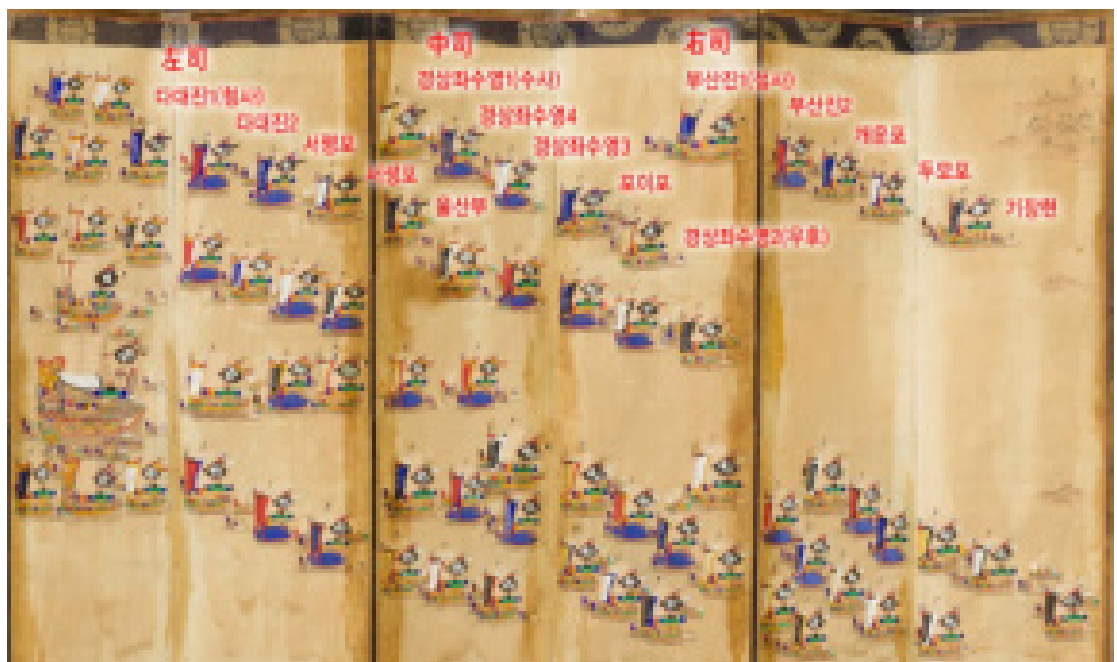 左司
中司
右司
다대진1(첨사)
다대진2
서평포
경상좌수영1(수사)
경상좌수영4
경상좌수영3
서생포
울산부
포이포
경상좌수영2(우후)
부산진1(첨사)
부산진2
개운포
두모포
기장현